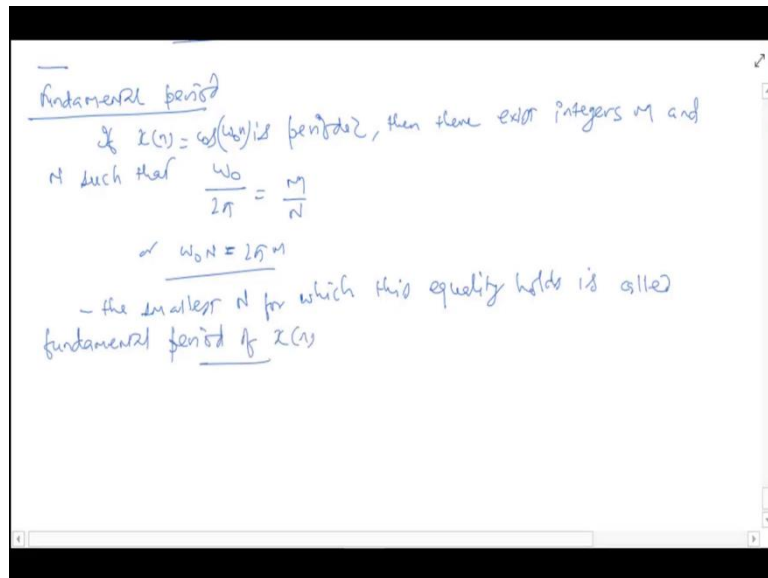 fundamental period
If x(n) = cos(ω₀n) is periodic, then there exist integers M and
N such that ω₀/2π = M/N
or ω₀N = 2πM
- the smallest N for which this equality holds is called
fundamental period of x(n)